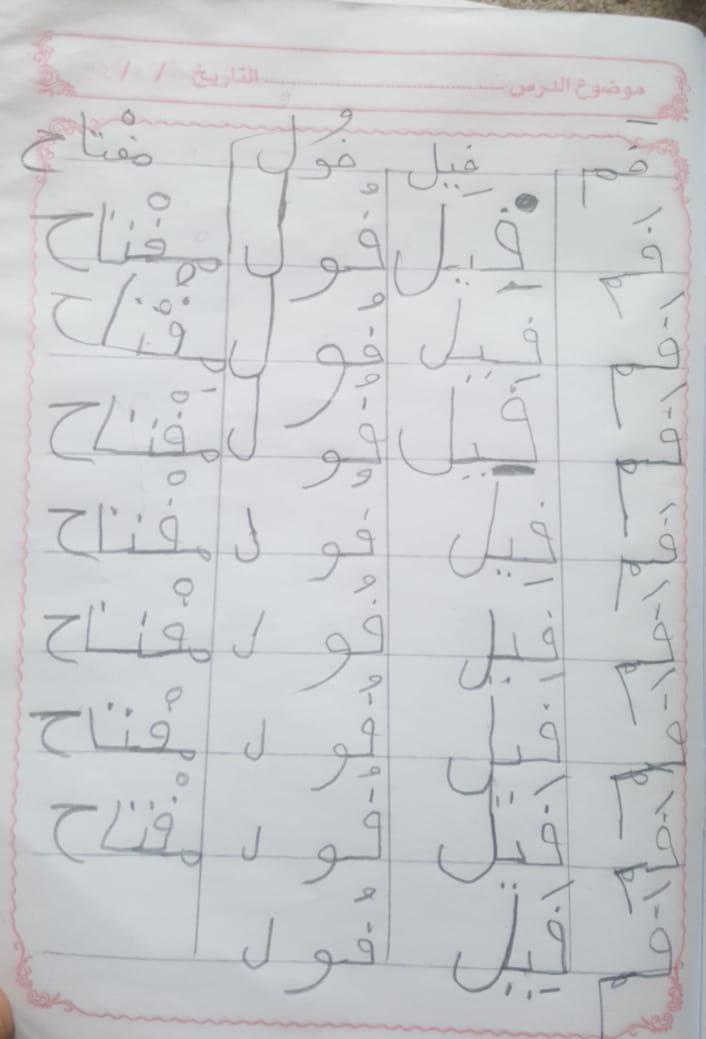 موضوع الدرس ........................ التاريخ / /
فَم فِيل فُول مفْتاح
فَم فِيل فُول مفْتاح
فَم فِيل فُول مفْتاح
فَم فِيل فُول مفْتاح
فَم فِيل فُول مفْتاح
فَم فِيل فُول مفْتاح
فَم فِيل فُول مفْتاح
فَم فِيل فُول مفْتاح
فَم فِيل فُول